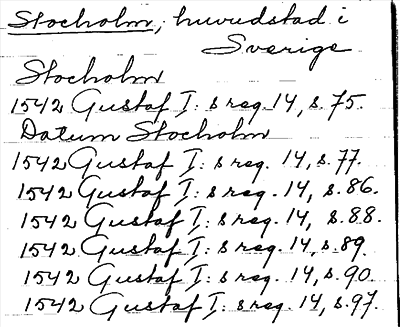 Stockholm, huvudstad i
Sverige
Stockholm
1542 Gustaf I:s reg. 14, s. 75.
Datum Stockholm
1542 Gustaf I:s reg. 14, s. 77.
1542 Gustaf I:s reg. 14, s. 86.
1542 Gustaf I:s reg. 14, s. 88.
1542 Gustaf I:s reg. 14, s. 89.
1542 Gustaf I:s reg. 14, s. 90.
1542 Gustaf I:s reg. 14, s. 97.